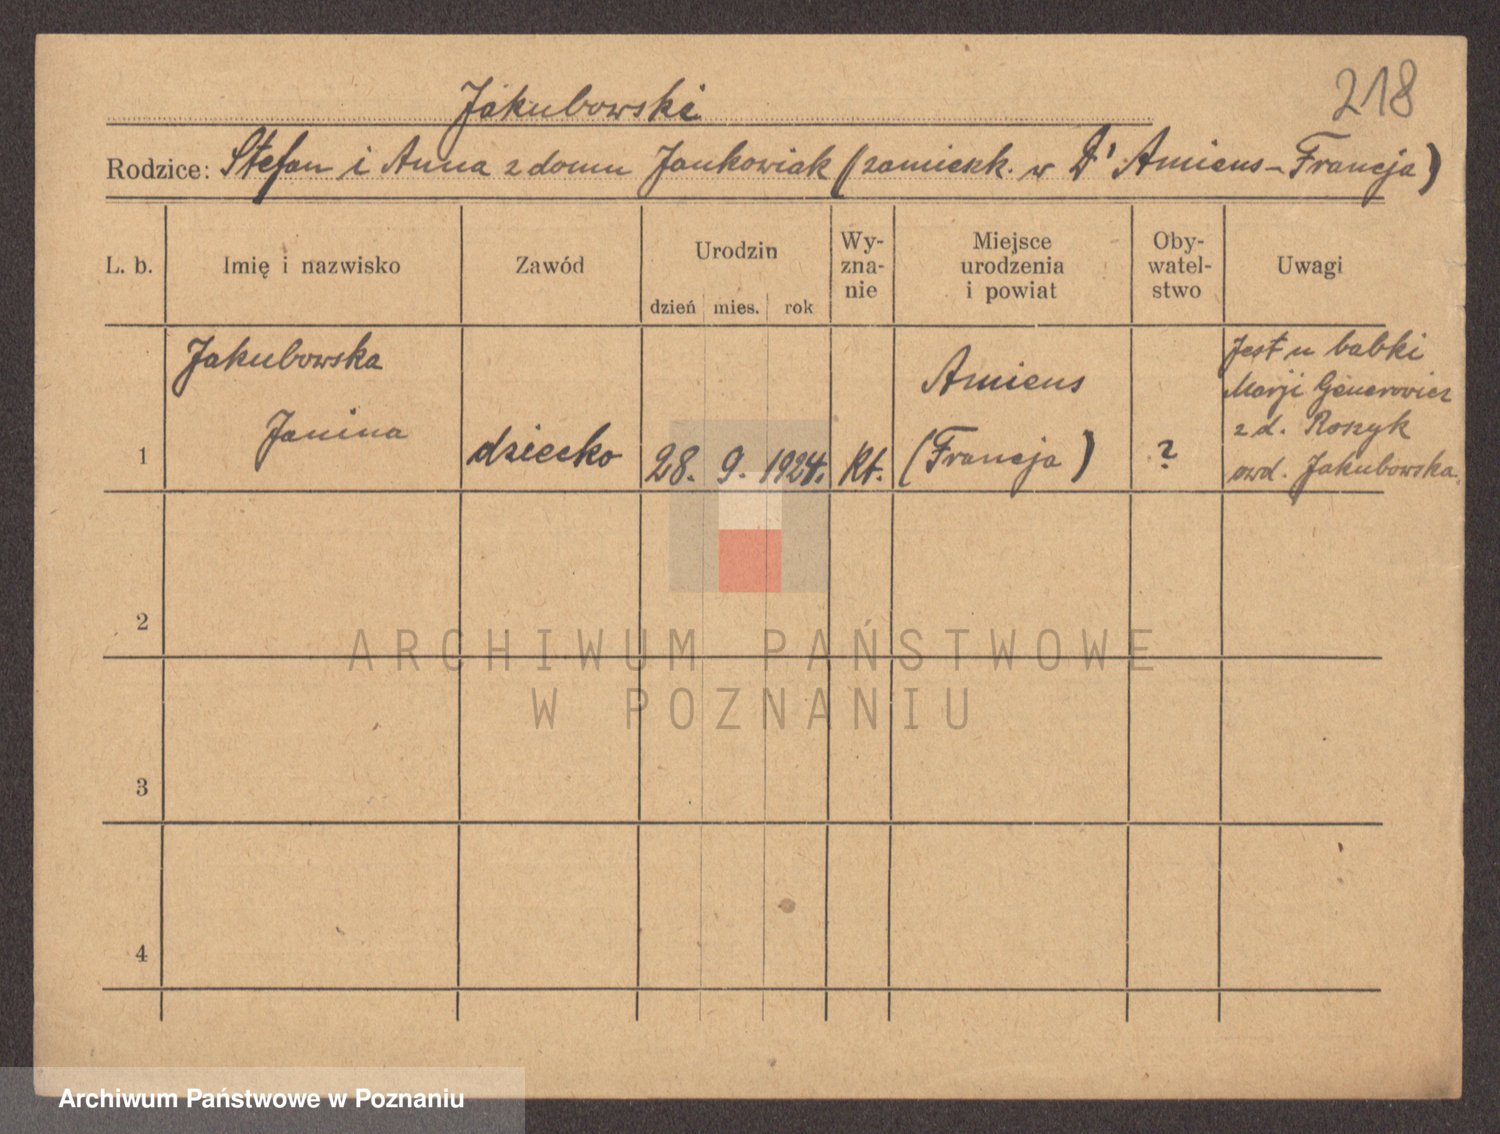 218
Jakubowski
Rodzice: Stefan i Anna z domu Jankowiak (zamieszk. w D' Amiens - Francja)
L. b.
Imię i nazwisko
Zawód
Urodzin
dzień mies. rok
Wy-
zna-
nie
Miejsce
urodzenia
i powiat
Oby-
watel-
stwo
Uwagi
1
Jakubowska
Janina
dziecko
28. 9. 1924.
Kt.
Amiens
(Francja)
?
Jest u babki
Marji
z d. Roszyk
owd. Jakubowska.
2
3
4
ARCHIWUM PAŃSTWOWE
W POZNANIU
Archiwum Państwowe w Poznaniu